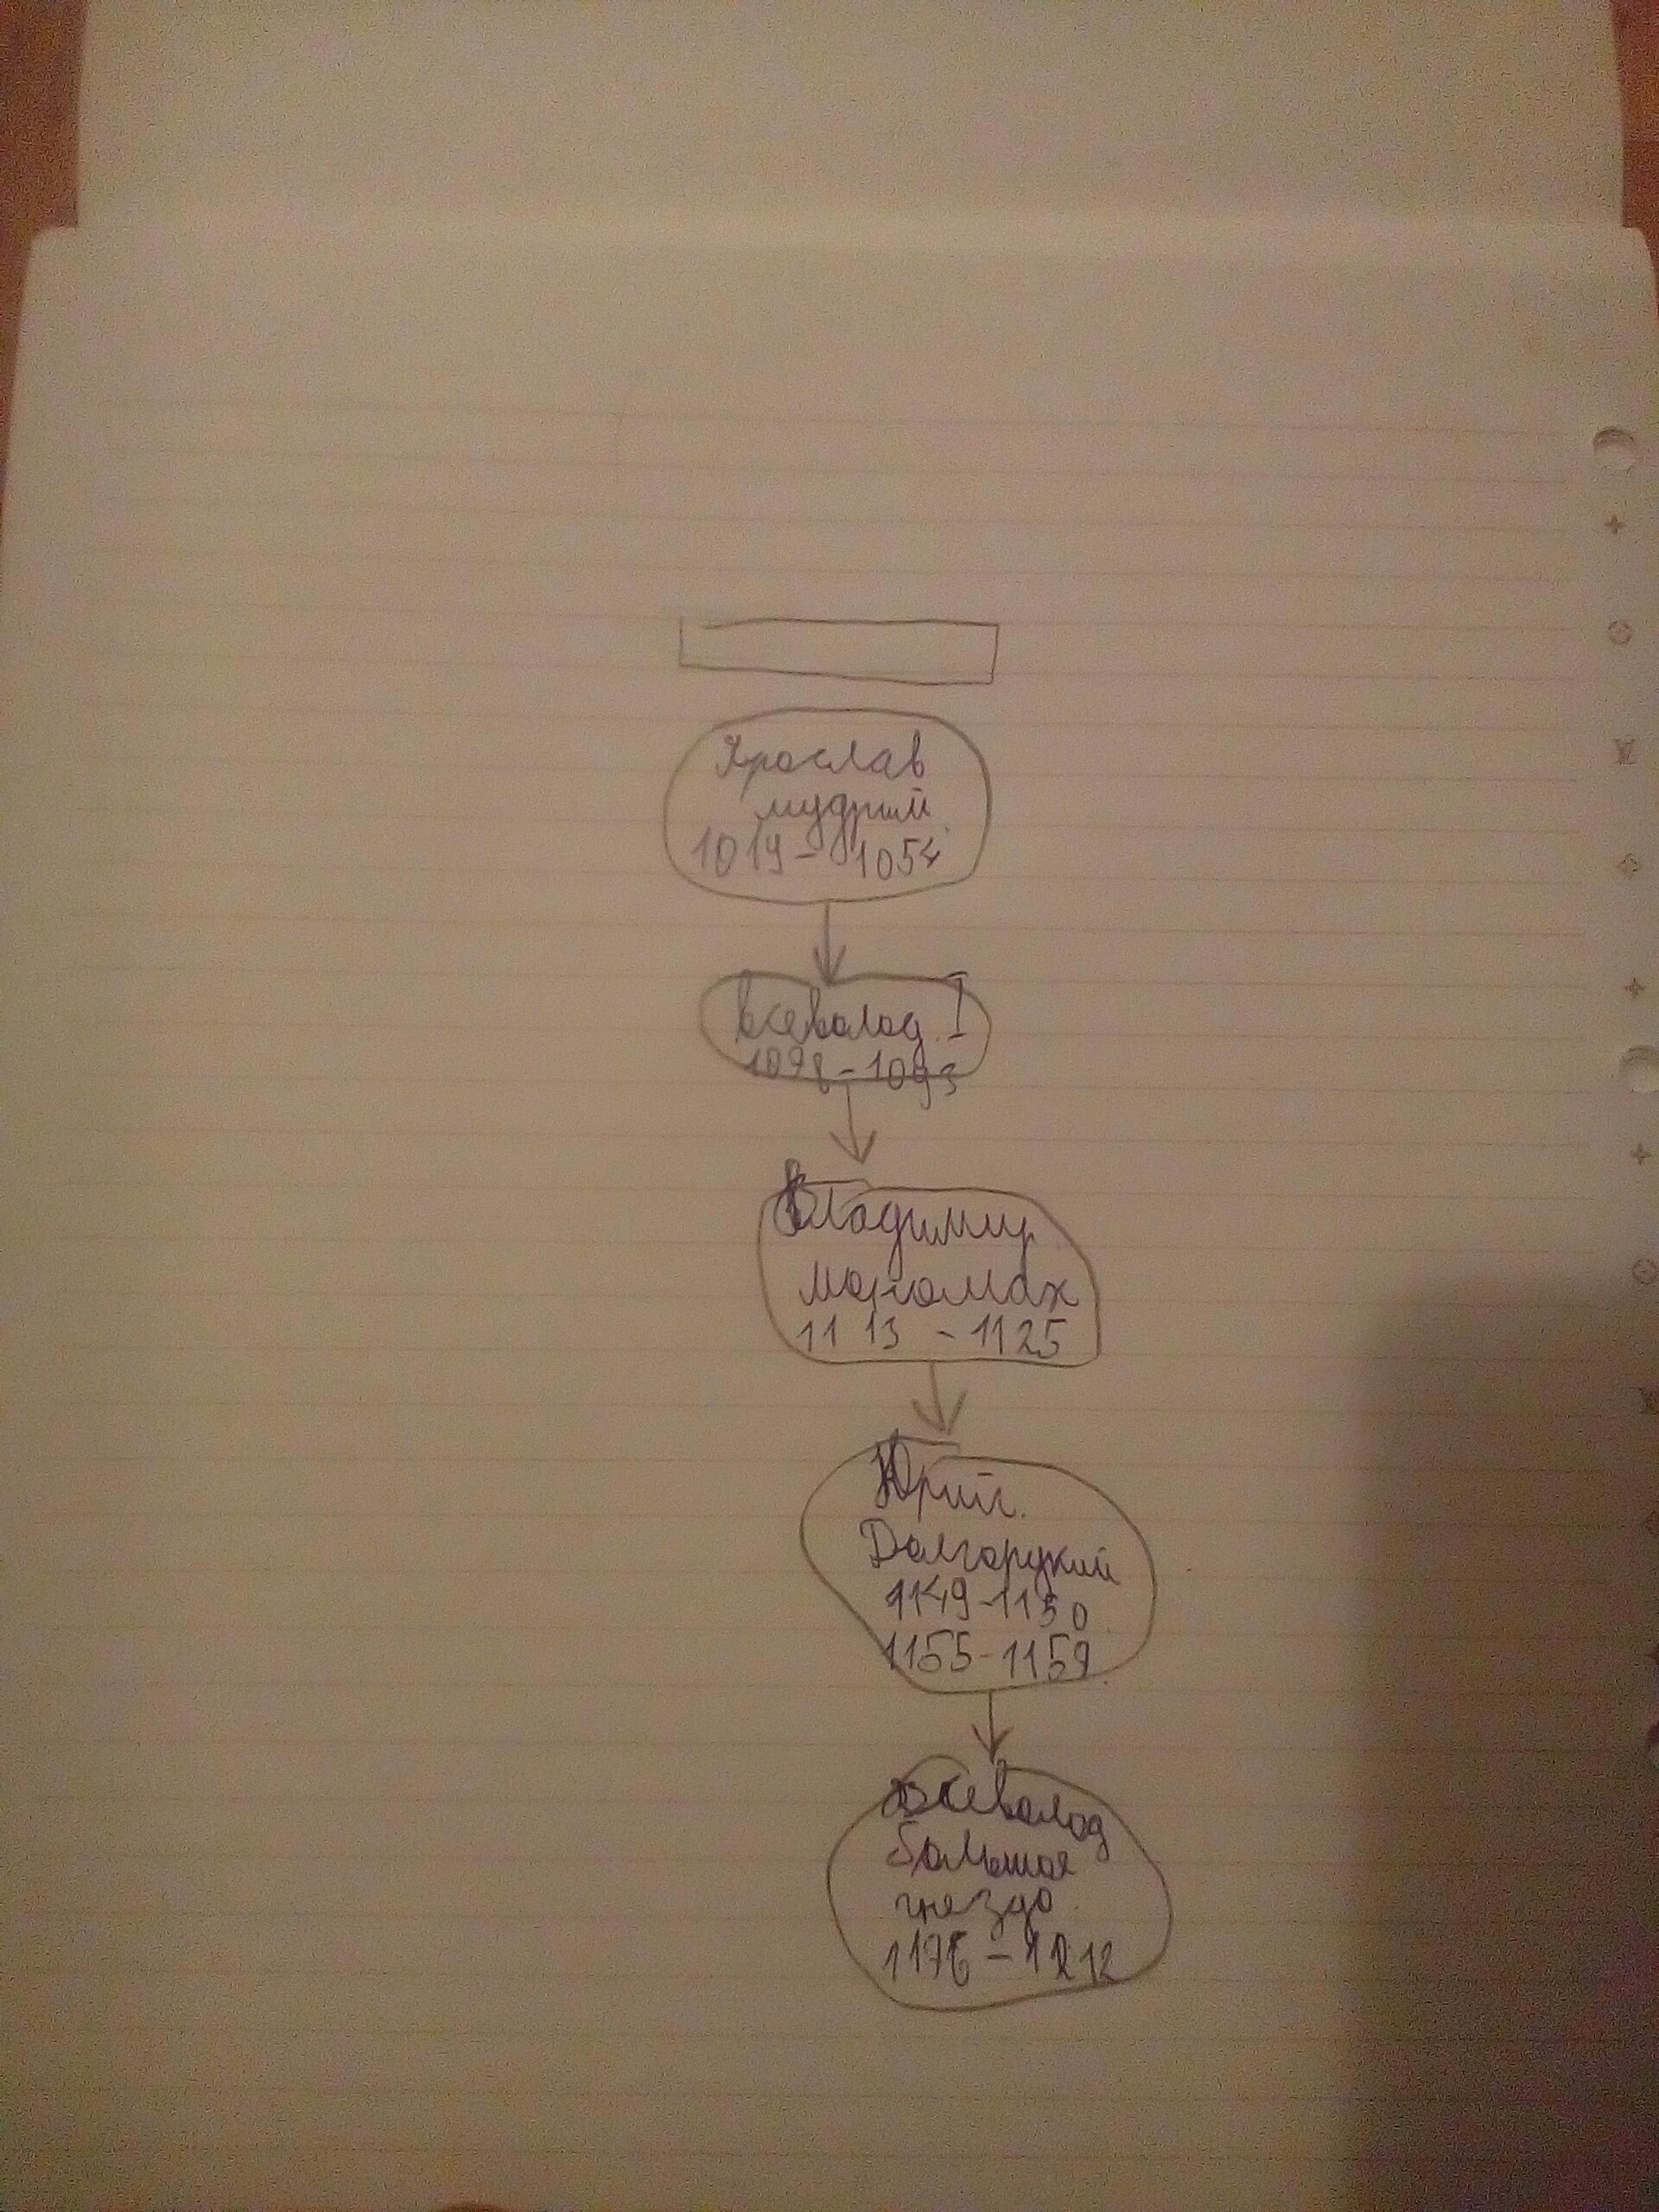 Ярослав
мудрый
1019 - 1054
Всеволод I
1078 - 1093
Владимир
Мономах
1113 - 1125
Юрий
Долгорукий
1149-1150
1155-1159
Всеволод
большое
гнездо
1176 - 1212